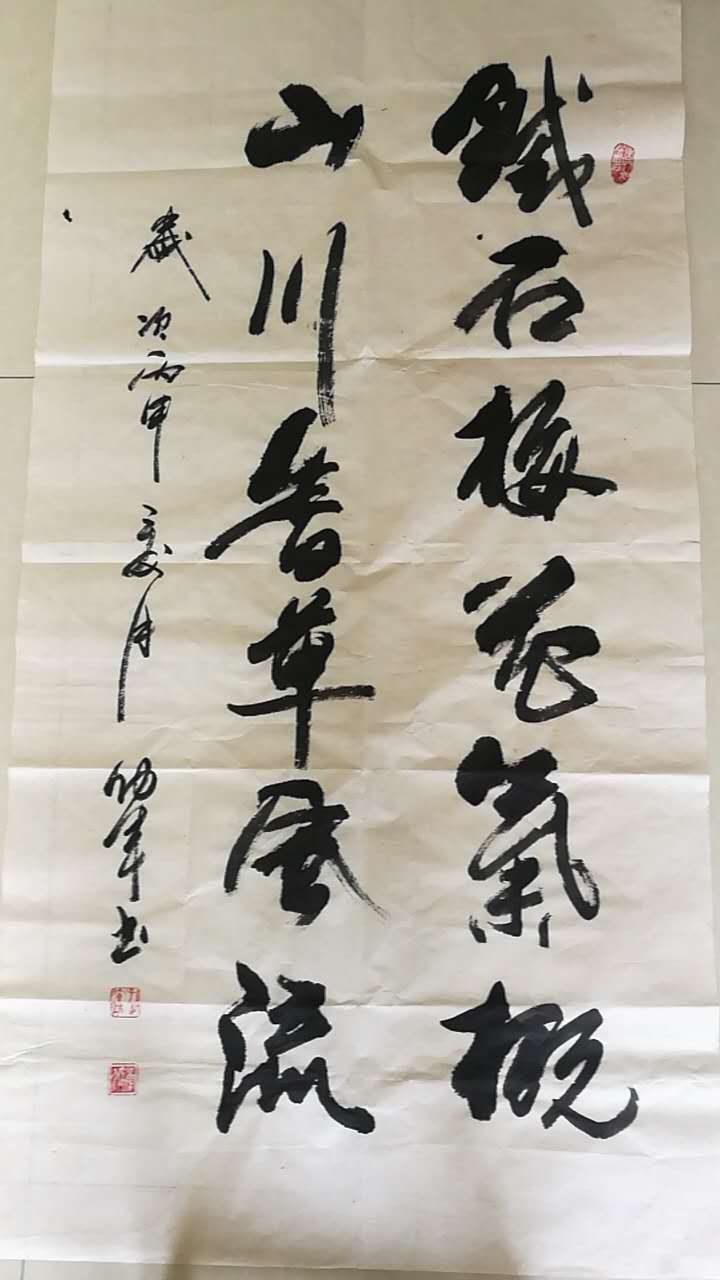 鐵石梅花氣概
山川香草風流
歲次丙申夏月 書